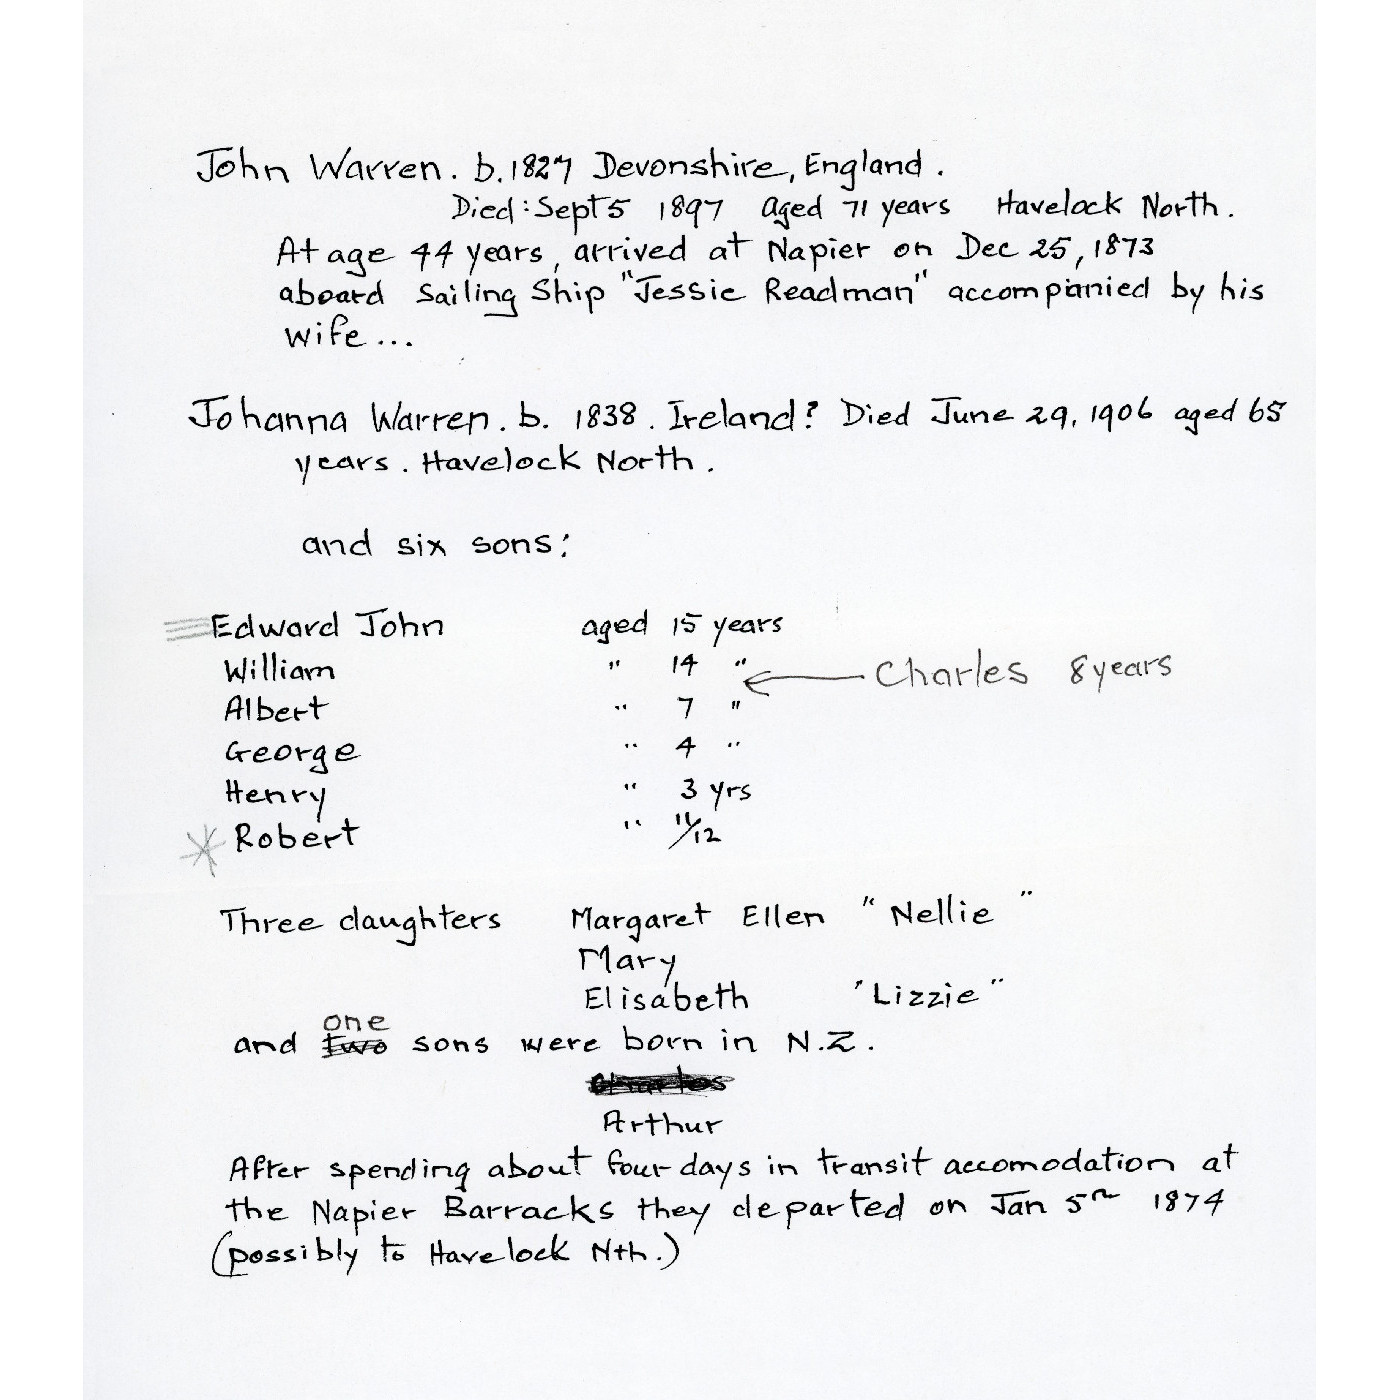 John Warren. b. 1827 Devonshire, England.
Died: Sept 5 1897 aged 71 years Havelock North.
At age 44 years, arrived at Napier on Dec 25, 1873
aboard Sailing Ship "Jessie Readman" accompianied by his
wife...
Johanna Warren. b. 1838. Ireland? Died June 29, 1906 aged 65
years. Havelock North.
and six sons:
Edward John aged 15 years
William " 14 " ← Charles 8 years
Albert " 7 "
George " 4 "
Henry " 3 yrs
* Robert " 11/12
Three daughters Margaret Ellen "Nellie"
Mary
Elisabeth "Lizzie"
one
and two sons were born in N.Z.
Charles
Arthur
After spending about four days in transit accomodation at
the Napier Barracks they departed on Jan 5th 1874
(possibly to Havelock Nth.)